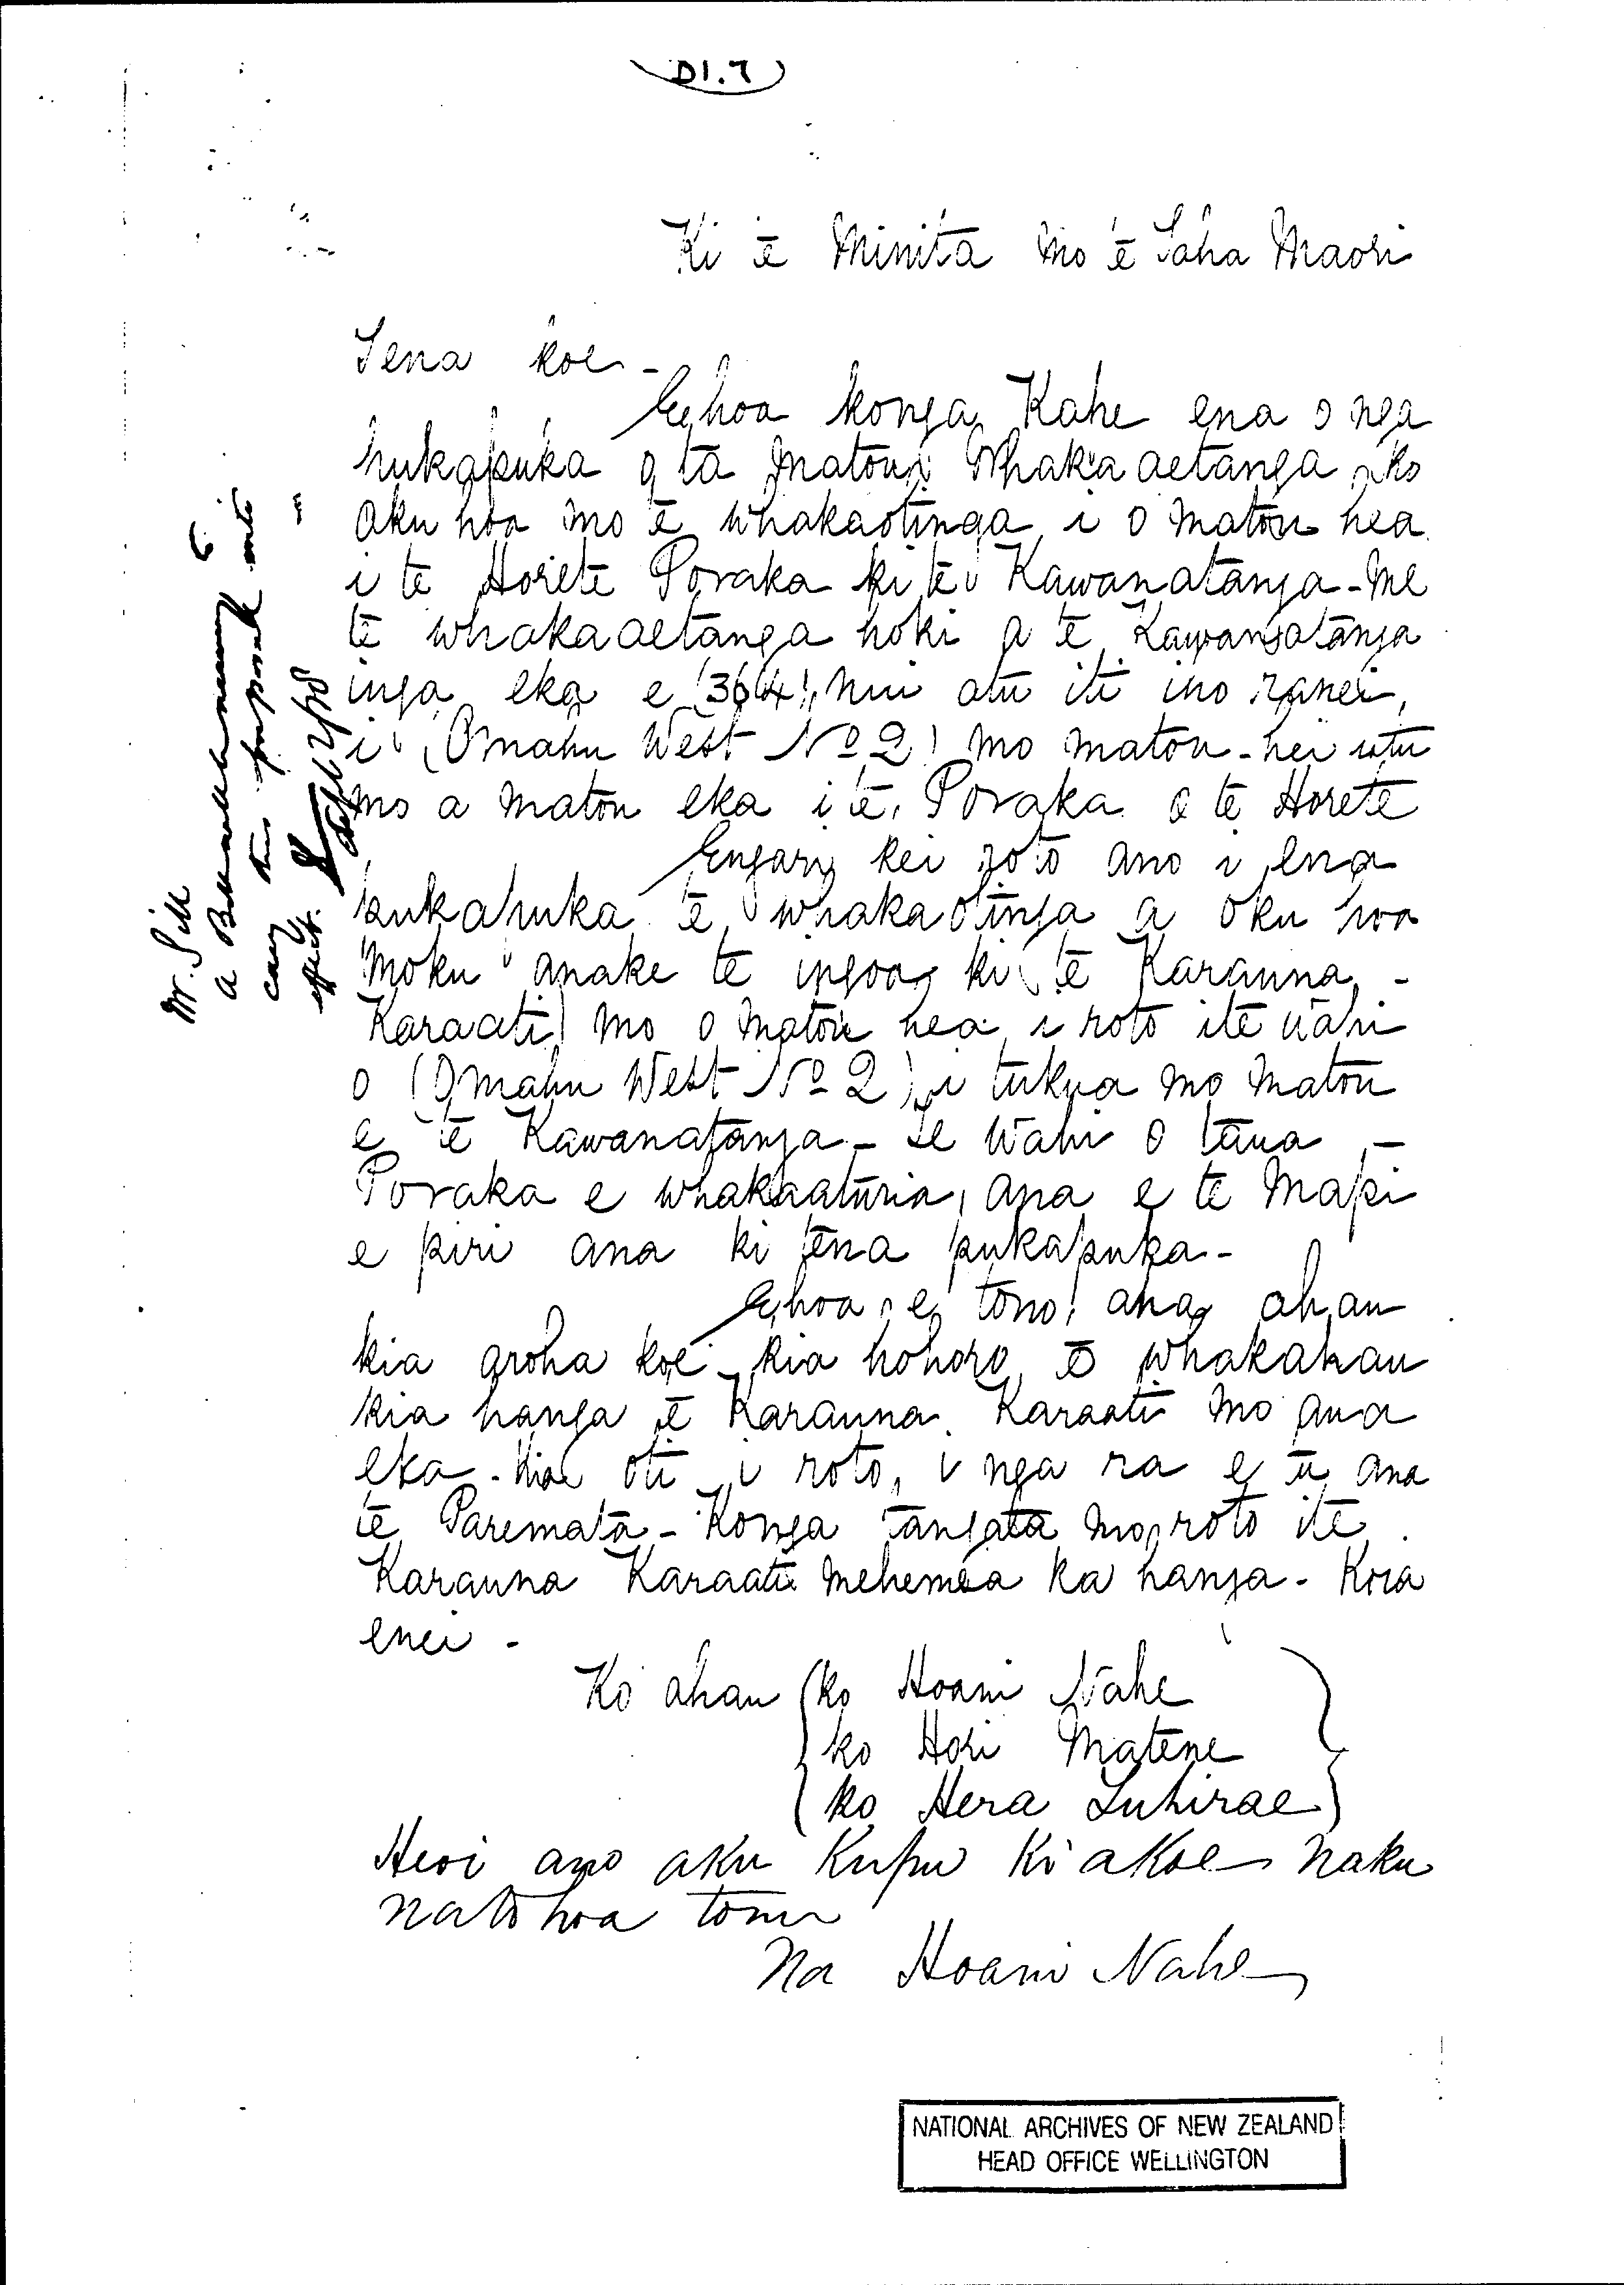 D1.7
Ki te Minita mo te Taha Maori
Tena koe -
Ehoa konga Kape ena o nga
pukapuka o ta matou Whakaaetanga ko
aku hoa mo te whakaotinga i o matou hea
i te Horete Poraka ki te Kawanatanga - me
te whakaaetanga hoki a te Kawanatanga
inga eka e (364) nui atu iti iho ranei,
i (Omahu West No 2) mo matou - hei utu
mo a matou eka i te Poraka o te Horete
Engari kei roto ano i ena
pukapuka te whakaotinga a oku hoa
moku anake te ingoa ki te Karauna -
Karaati mo o matou hea i roto ite wahi
o (Omahu West No 2) i tukua mo matou
e te Kawanatanga - te wahi o taua -
Poraka e whakaaturia ana e te Mapi
e piri ana ki tena pukapuka -
Ehoa, e tono ana ahau
kia aroha koe - kia hohoro to whakahau
kia hanga te Karauna Karaati mo aua
eka - kia oti i roto, i nga ra e tu ana
te Paremata - Konga tangata mo roto ite
Karauna Karaati mehemea ka hanga - Koia
enei -
Ko ahau (ko Hoani Nahe
ko Hori Matene
(ko Hera Tuhirae)
Heoi ano aku Kupu Ki a Koe Naku
na to hoa tonu
Na Hoani Nahe
Mr. Sill
a
carry this proposal into
effect.
NATIONAL ARCHIVES OF NEW ZEALAND
HEAD OFFICE WELLINGTON